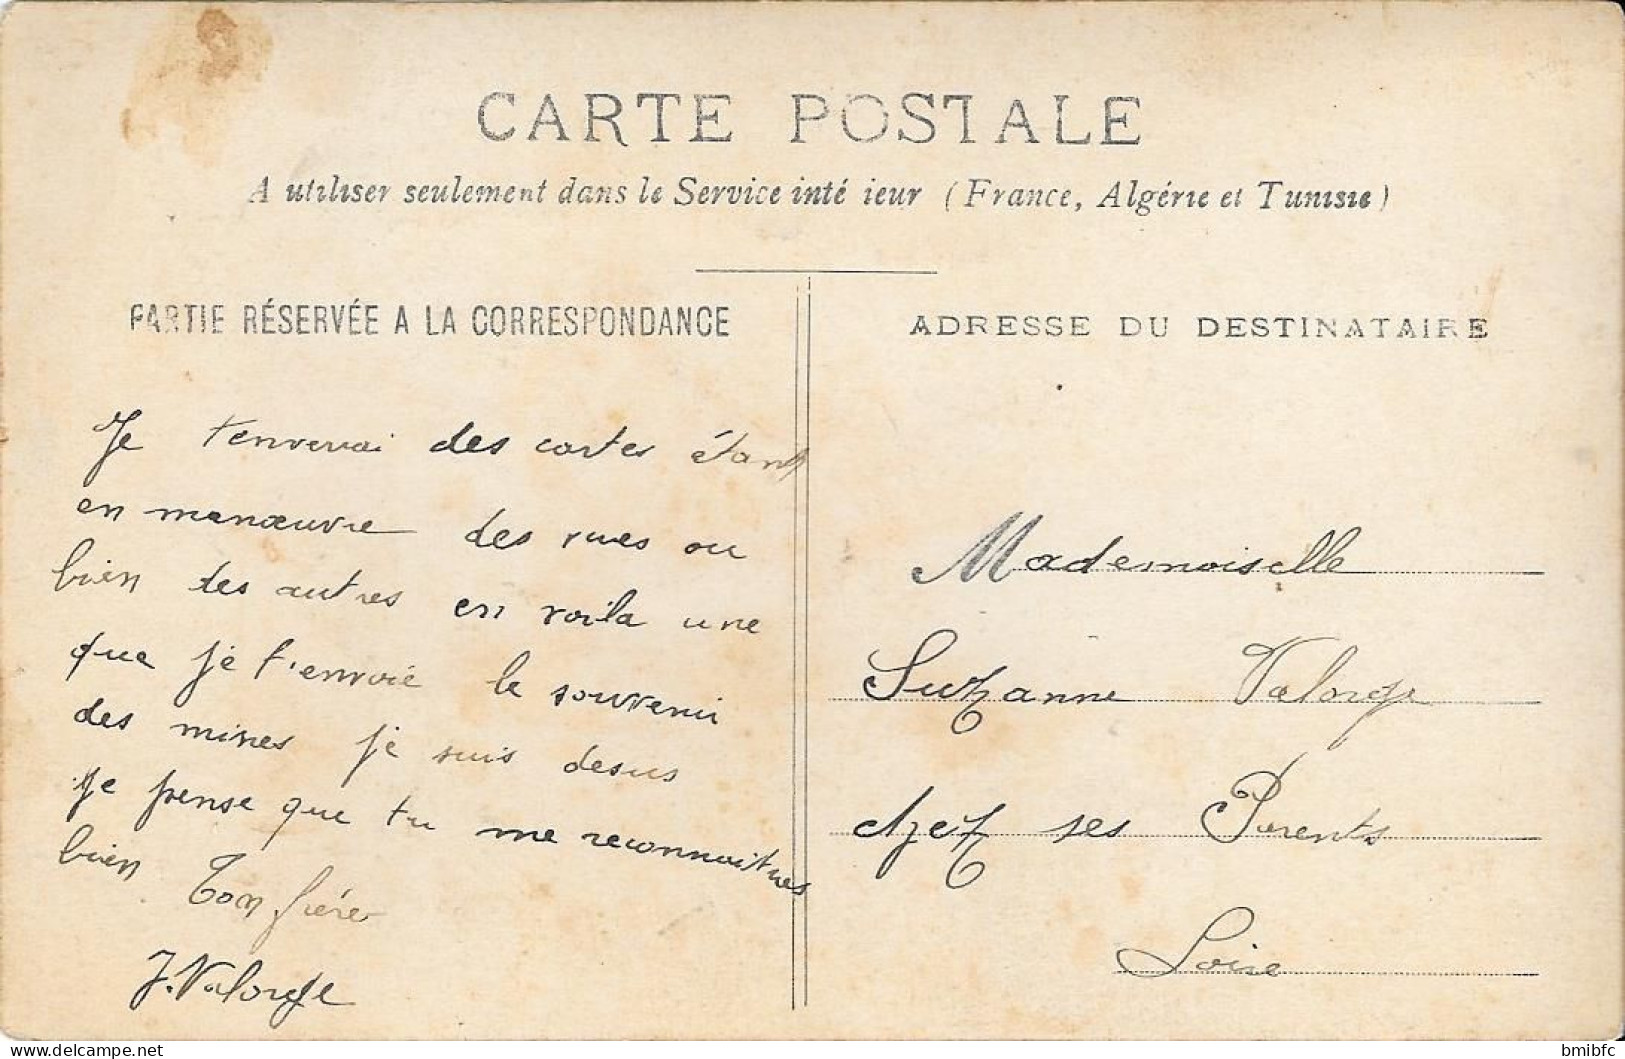 CARTE POSTALE
A utiliser seulement dans le Service inté ieur (France, Algérie et Tunisie)
PARTIE RÉSERVÉE A LA CORRESPONDANCE
Je t'enverrai des cartes étant
en manœuvre des rues ou
bien des autres en voila une
que je t'envoie le souvenir
des mines je suis desus
Je pense que tu me reconnaitres
bien Ton frère
J. Valorge
ADRESSE DU DESTINATAIRE
Mademoiselle
Suzanne Valorge
chez ses Parents
Loire
bmibfc